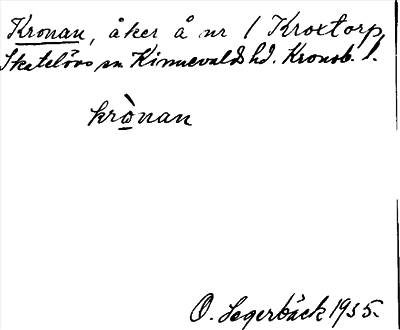 Kronan, åker å nr 1 Kroxtorp,
Skatelövs sn Kinnevalds hd. Kronob. l.
krònan
O. Segerbäck 1935.